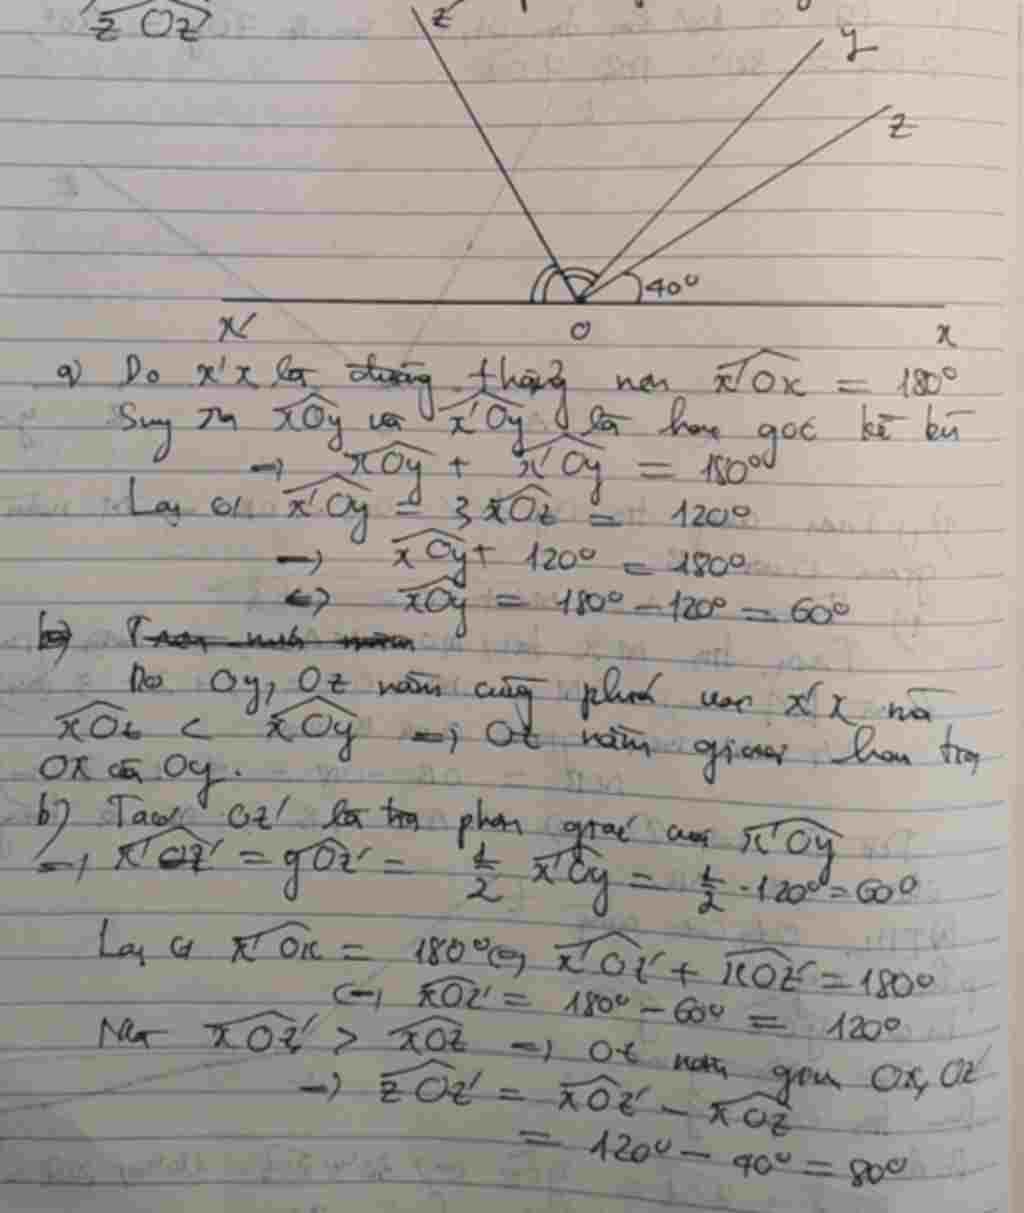 z Oz'
z'
y
z
40°
x' O x
a) Do x'x là đường thẳng nên x'Ox = 180°
Suy ra xOy và x'Oy là hai góc kề bù
→ xOy + x'Oy = 180°
Lại có x'Oy = 3 xOz = 120°
→ xOy + 120° = 180°
<=> xOy = 180° - 120° = 60°
b)
Do Oy, Oz nằm cùng phía với x'x mà
xOz < xOy → Oz nằm giữa hai tia
Ox và Oy.
b) Ta có Oz' là tia phân giác của x'Oy
→ x'Oz' = yOz' = 1/2 x'Oy = 1/2 . 120° = 60°
Lại có x'Ox = 180° <=> x'Oz' + xOz' = 180°
<=> xOz' = 180° - 60° = 120°
Mà xOz' > xOz → Oz nằm giữa Ox, Oz'
→ zOz' = xOz' - xOz
= 120° - 40° = 80°